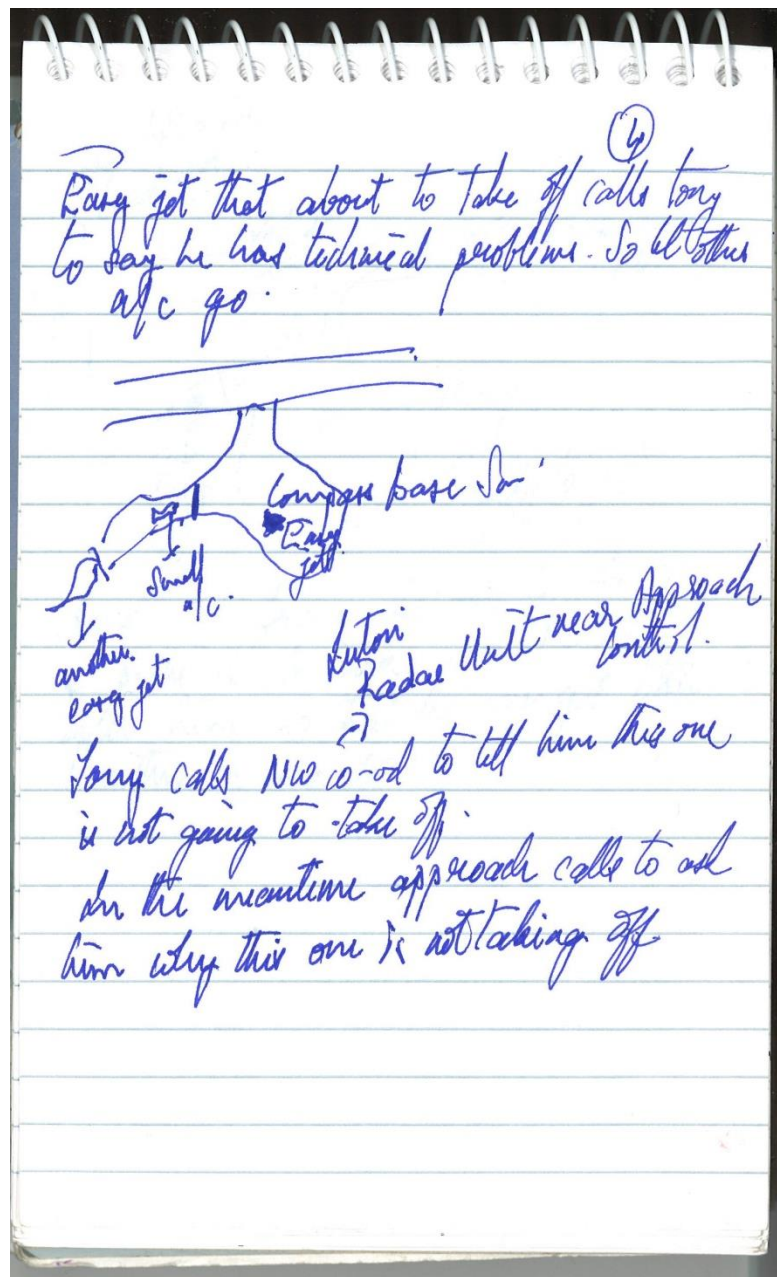 4
Easy jet that about to Take off calls tony
to say he has technical problems. So let other
a/c go.
Compass base
Easy
jet
Small
a/c.
another
easy jet
Luton
Radar Unit near Approach
Control.
Tony calls NW co-od to tell him this one
is not going to take off.
In the meantime approach calls to ask
him why this one is not taking off